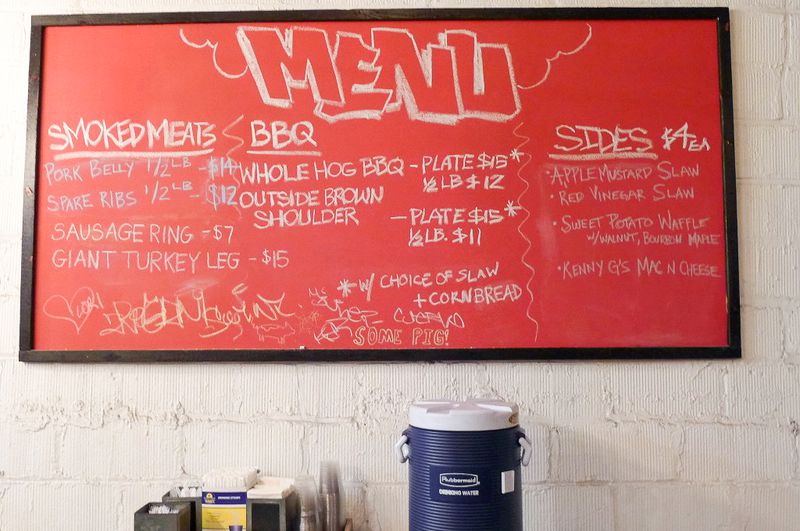 MENU
SMOKED MEATS
PORK BELLY 1/2 LB - $14
SPARE RIBS 1/2 LB - $12
SAUSAGE RING - $7
GIANT TURKEY LEG - $15
BBQ
WHOLE HOG BBQ - PLATE $15*
1/2 LB $12
OUTSIDE BROWN
SHOULDER - PLATE $15*
1/2 LB. $11
* W/ CHOICE OF SLAW
+ CORNBREAD
SOME PIG!
SIDES $4 EA
• APPLE MUSTARD SLAW
• RED VINEGAR SLAW
• SWEET POTATO WAFFLE
W/ WALNUT, BOURBON MAPLE
• KENNY G'S MAC N CHEESE
Rubbermaid
DRINKING WATER